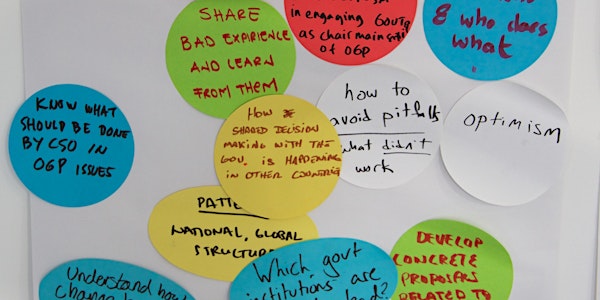 SHARE
BAD EXPERIENCE
AND LEARN
FROM THEM
in engaging GOVT
as chair main
of OGP
& who does
what
KNOW WHAT
SHOULD BE DONE
BY CSO IN
OGP ISSUES
HOW
SHARED DECISION
MAKING WITH THE
GOV. IS HAPPENING
IN OTHER COUNTRIES
how to
avoid pitfalls
what didn't
work
OPTIMISM
PATTE
NATIONAL, GLOBAL
STRUCTUR
Understand how
Which govt
institutions are
DEVELOP
CONCRETE
PROPOSALS
RELATED TO